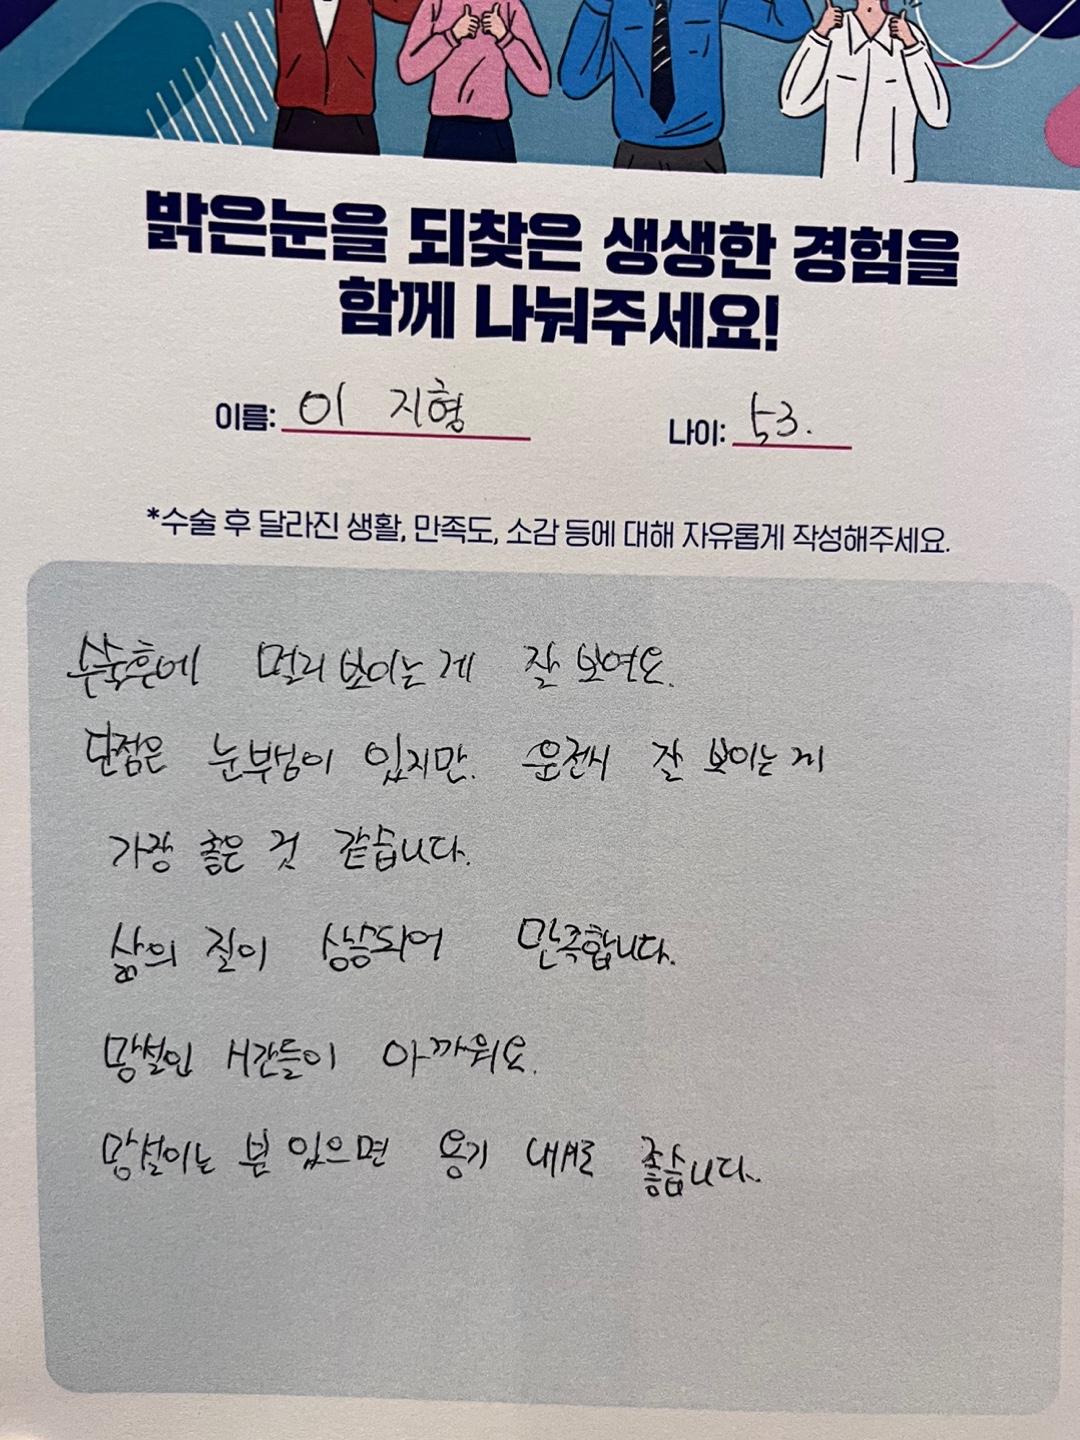 밝은눈을 되찾은 생생한 경험을
함께 나눠주세요!
이름: 이 지형 나이: 53.
*수술 후 달라진 생활, 만족도, 소감 등에 대해 자유롭게 작성해주세요.
수술후에 멀리 보이는 게 잘 보여요.
단점은 눈부심이 있지만. 운전시 잘 보이는 게
가장 좋은 것 같습니다.
삶의 질이 상승되어 만족합니다.
망설인 시간들이 아까워요.
망설이는 분 있으면 용기 내셔도 좋습니다.